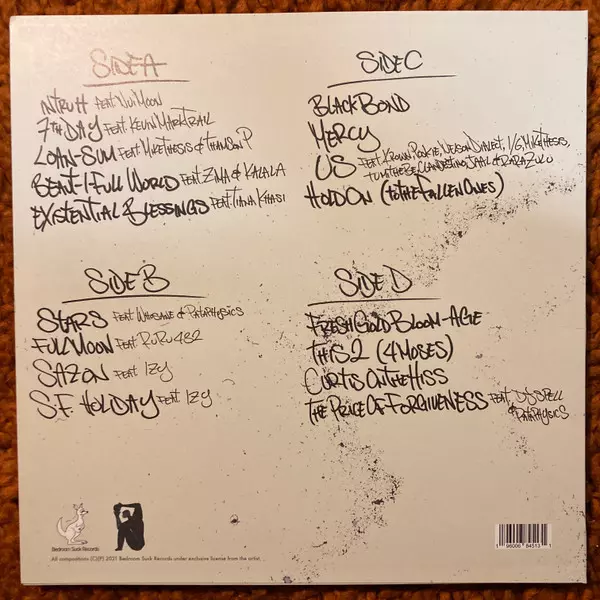 SIDE A
NTRUH FEAT NUI MOON
7TH DAY FEAT. KEVIN MARK TRAIL
LOAN-SUM FEAT MIKE THESIS & THAMSON P
BEAUT-I-FULL WORLD FEAT. ZIMA & KALALA
EXISTENTIAL BLESSINGS FEAT. TIANA KHASI
SIDE B
STARS FEAT WHOSANE & PATAPHYSICS
FULL MOON FEAT RURU 432
SAZON FEAT IZY
S.F. HOLIDAY FEAT. IZY
SIDE C
BLACK BOND
MERCY
US FEAT. KROWN, POOKIE, NELSON DIALECT, 1/6, MIKE THESIS,
CLANDESTINO, & RARA ZULU
HOLD ON (TO THE FALLEN ONES)
SIDE D
FRESH GOLD BLOOM-AGE
THIS 2 (4 MOSES)
CURTIS ON THE HISS
THE PRICE OF FORGIVENESS FEAT. DJ SPELL
& PATAPHYSICS
Bedroom Suck Records
All compositions (C)(P) 2021 Bedroom Suck Records under exclusive license from the artist.
1 96006 84513 1